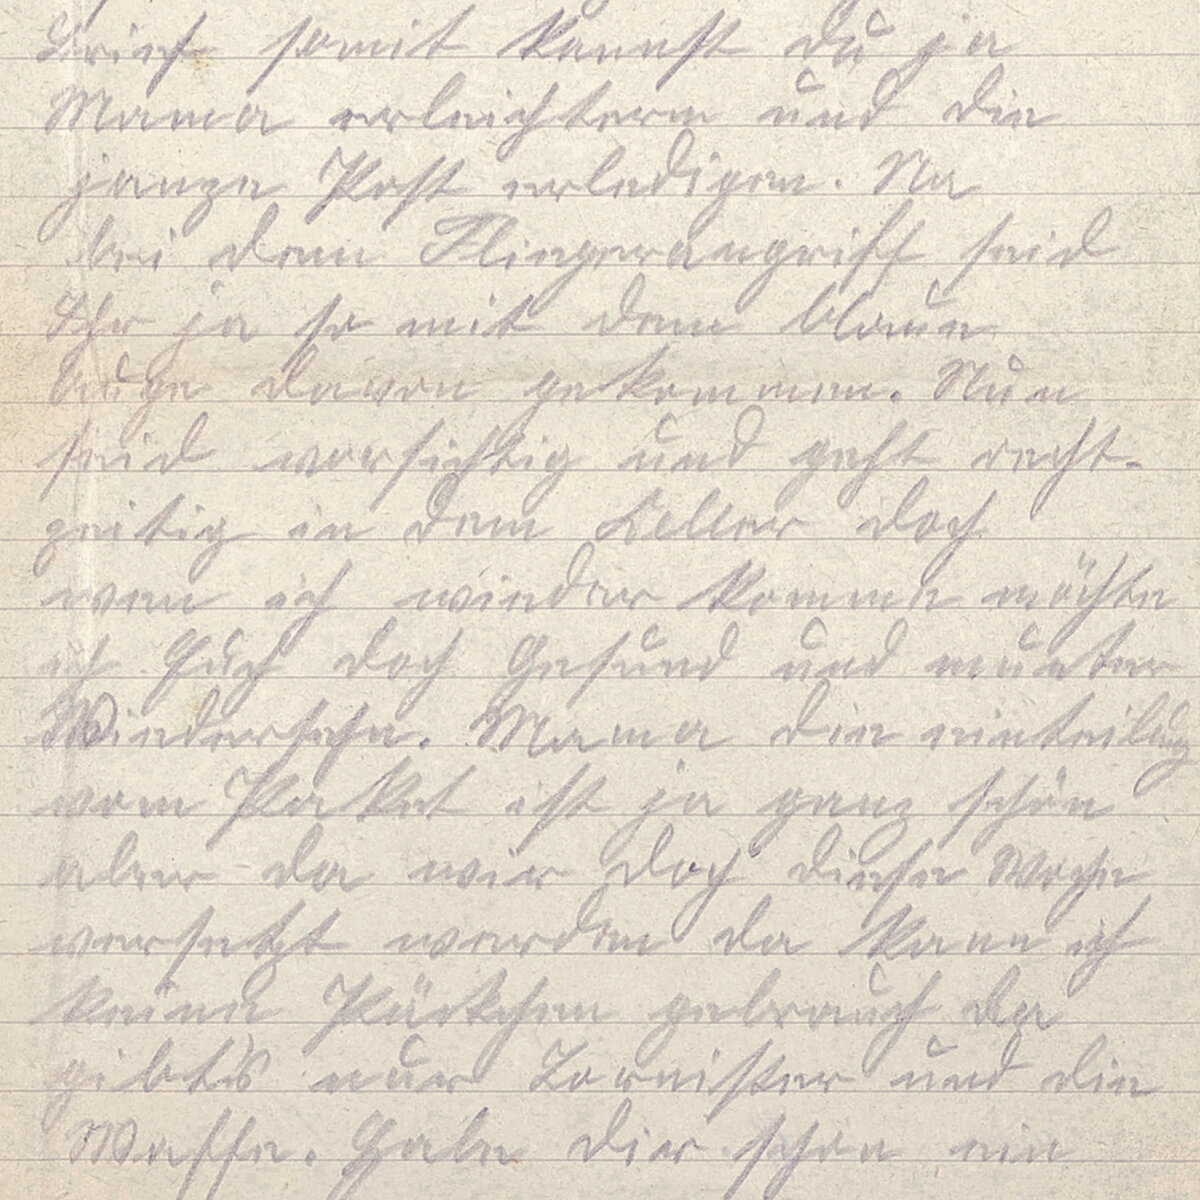 Brief somit kannst du ja
Mama erleichtern und die
ganze Post erledigen. Na
bei dem Fliegerangriff seid
Ihr ja so mit dem blaun
Auge davon gekommen. Nun
seid vorsichtig und geht recht-
zeitig in dem Keller doch
wen ich wieder komme möchte
ich Euch doch Gesund und munter
Wiedersehn. Mama die einteilung
vom Paket ist ja ganz schön
aber da wir doch diese Woche
versetzt werden da kann ich
keine Päckchen gebrauch da
gibts nur Tornister und die
Waffe. Habe dir schon ein